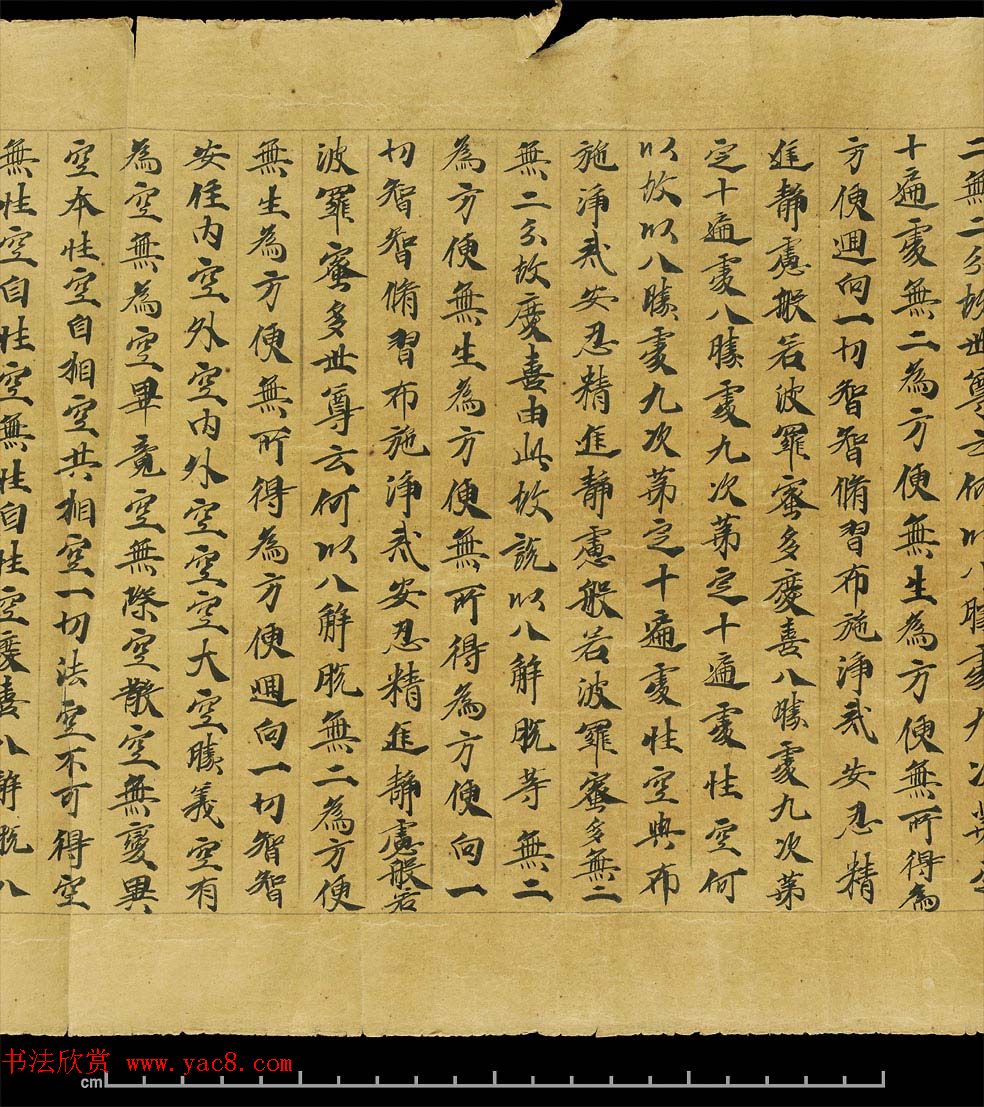 二無二分故世尊云何以八勝處九次第定
十遍處無二為方便無生為方便無所得為
方便迴向一切智智脩習布施淨戒安忍精
進靜慮般若波羅蜜多慶喜八勝處九次第
定十遍處八勝處九次第定十遍處性空何
以故以八勝處九次第定十遍處性空與布
施淨戒安忍精進靜慮般若波羅蜜多無二
無二分故慶喜由此故說以八解脫等無二
為方便無生為方便無所得為方便向一
切智智脩習布施淨戒安忍精進靜慮般若
波羅蜜多世尊云何以八解脫無二為方便
無生為方便無所得為方便迴向一切智智
安住內空外空內外空空空大空勝義空有
為空無為空畢竟空無際空散空無變異
空本性空自相空共相空一切法空不可得空
無性空自性空無性自性空慶喜八解脫八
书法欣赏 www.yac8.com
cm